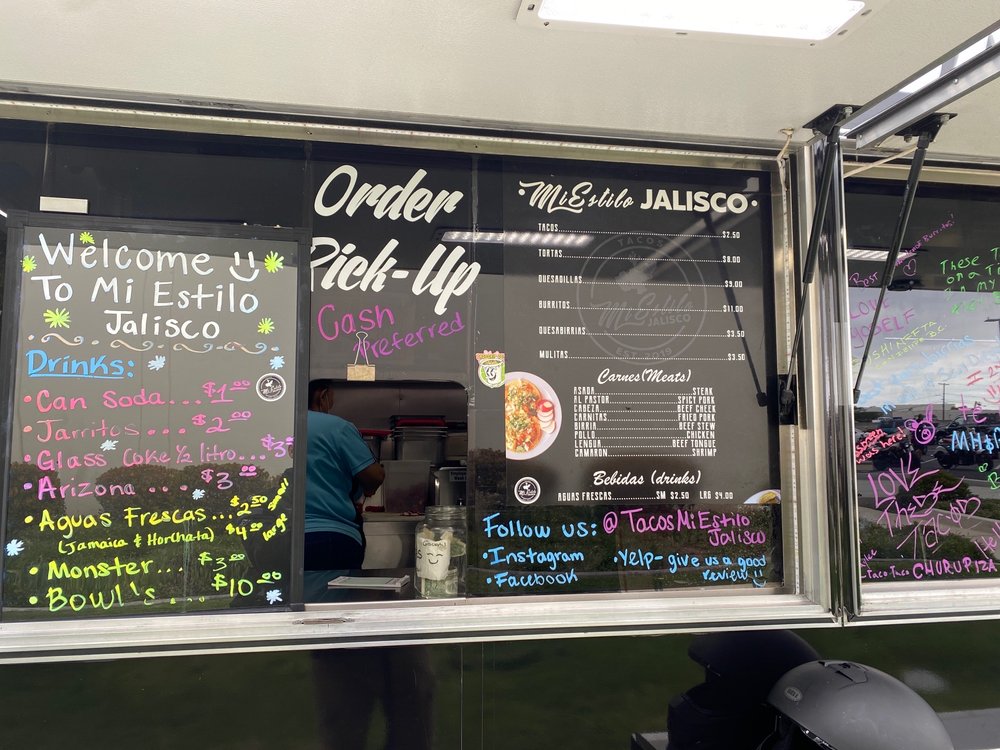 Welcome
To Mi Estilo
Jalisco
Drinks:
• Can Soda...$1.00
• Jarritos...$2.00
• Glass Coke 1/2 litro...$3
• Arizona...$3.00
• Aguas Frescas...$2.50 small
(Jamaica & Horchata) $4.00 large
• Monster...$3.00
• Bowl's...$10.00
Order
Pick-Up
Cash
Preferred
• Mi Estilo JALISCO •
TACOS $2.50
TORTAS $8.00
QUESADILLAS $9.00
BURRITOS $11.00
QUESABIRRIAS $3.50
MULITAS $3.50
TACOS
Mi Estilo
JALISCO
EST. 2019
Carnes(Meats)
ASADA STEAK
AL PASTOR SPICY PORK
CABEZA BEEF CHEEK
CARNITAS FRIED PORK
BIRRIA BEEF STEW
POLLO CHICKEN
LENGUA BEEF TONGUE
CAMARON SHRIMP
Bebidas (drinks)
AGUAS FRESCAS SM $2.50 LRG $4.00
Follow us: @TacosMiEstilo
Jalisco
• Instagram • Yelp- give us a good
review
• Facebook
Best Burritos!
These T
LOVE
YOSELF
was here!
MH&
LOVE
The
TACOS
Taco Taco
CHURUPIZA
BELL